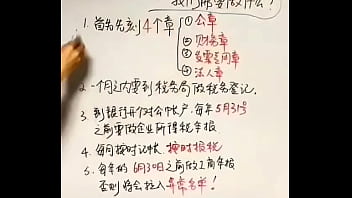 我们需要做什么？
1. 首先先刻4个章
① 公章
② 财务章
③ 发票专用章
④ 法人章
2. 一个月之内要到税务局做税务登记.
3. 到银行开个对公帐户, 每年5月31号
之前要做企业所得税年报
4. 每月按时记帐, 按时报税
5. 每年的6月30日之前做工商年报
否则将会拉入异常名单!